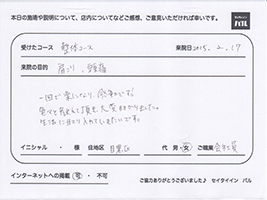 本日の施術や説明について、店内についてなどご感想、ご意見いただければ幸いです。
パル
受けたコース 整体コース 来院日 2015. 2. 17
来院の目的 肩こり、頭痛
一回で楽になり、感動です。
生活に取り入れていきたいです。
イニシャル ・ 様 住地区 目黒区 代 男・女 ご職業 会社員
インターネットへの掲載 可・不可
ご協力ありがとうございました♪ セイタイイン パル